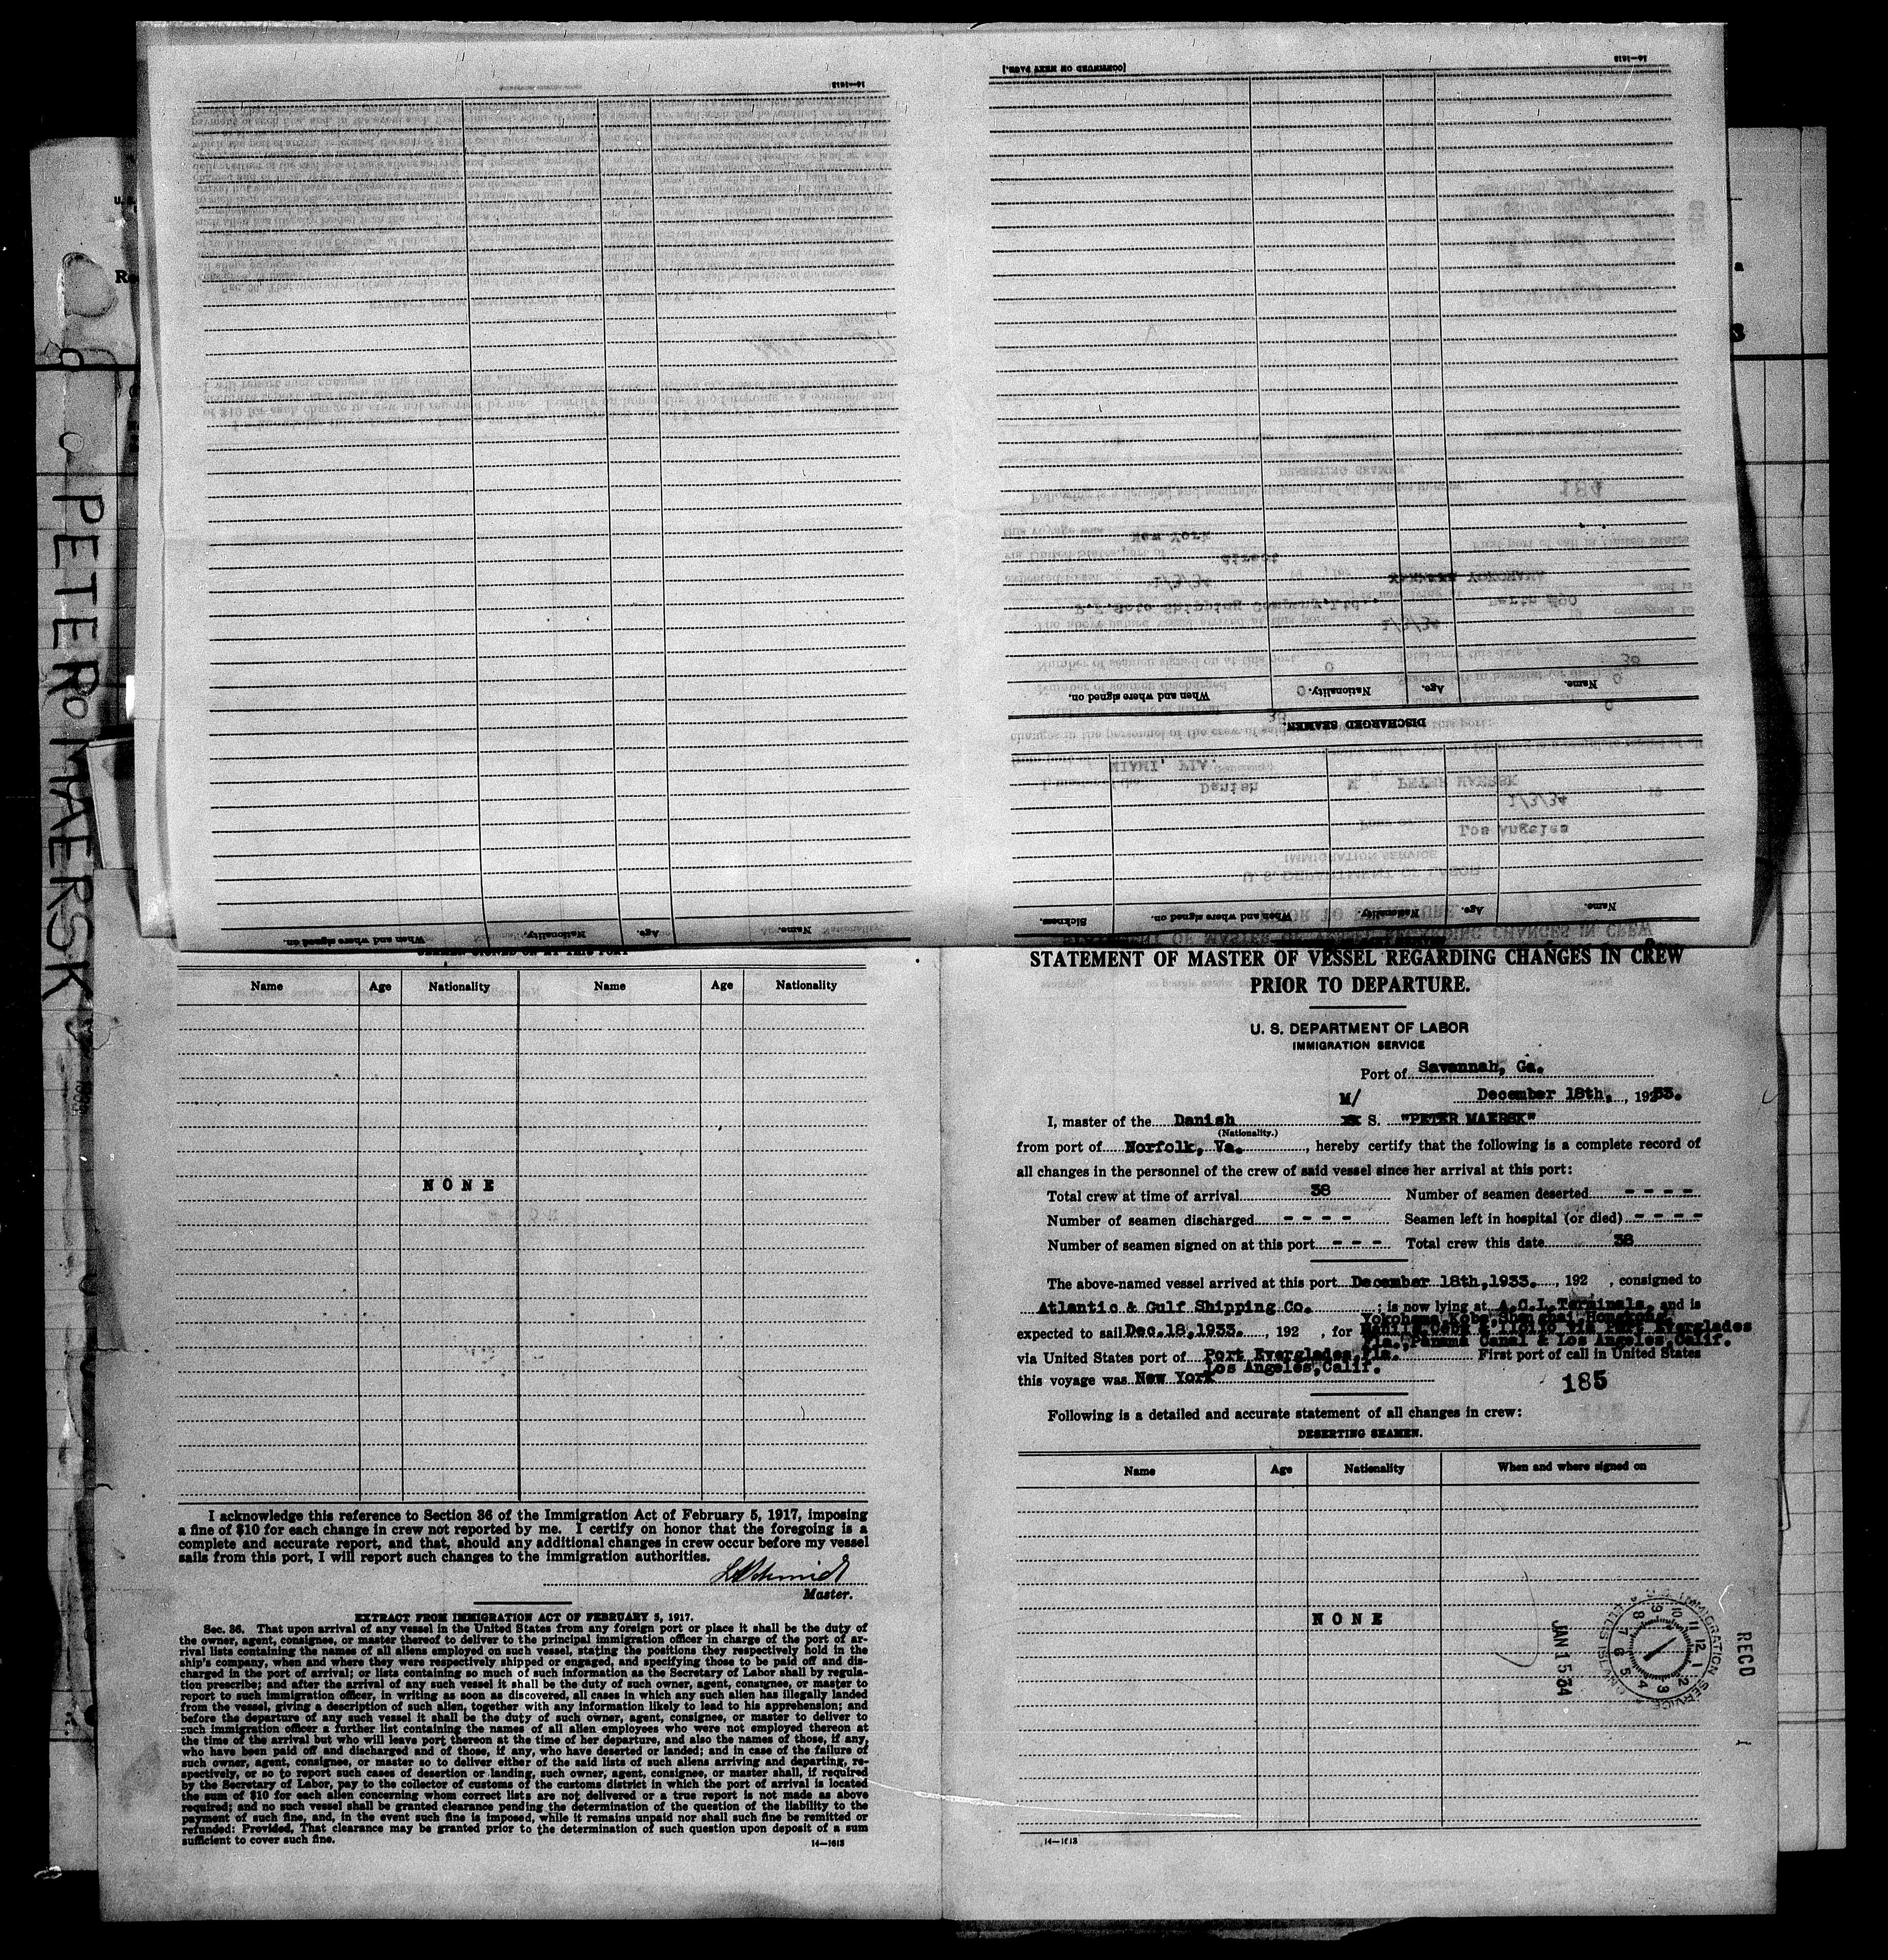 PETER MAERSK
[CONTINUED ON NEXT PAGE.]
14—1613
14—1613
Name. Age. Nationality. When and where signed on.
DISCHARGED SEAMEN.
Name. Age. Nationality. When and where signed on. Sickness.
Name. Age. Nationality. When and where signed on.
SEAMEN SIGNED ON AT THIS PORT
Name Age Nationality Name Age Nationality
NONE
I acknowledge this reference to Section 36 of the Immigration Act of February 5, 1917, imposing
a fine of $10 for each change in crew not reported by me. I certify on honor that the foregoing is a
complete and accurate report, and that, should any additional changes in crew occur before my vessel
sails from this port, I will report such changes to the immigration authorities.
Schmidt
Master.
EXTRACT FROM IMMIGRATION ACT OF FEBRUARY 5, 1917.
Sec. 36. That upon arrival of any vessel in the United States from any foreign port or place it shall be the duty of
the owner, agent, consignee, or master thereof to deliver to the principal immigration officer in charge of the port of ar-
rival lists containing the names of all aliens employed on such vessel, stating the positions they respectively hold in the
ship's company, when and where they were respectively shipped or engaged, and specifying those to be paid off and dis-
charged in the port of arrival; or lists containing so much of such information as the Secretary of Labor shall by regula-
tion prescribe; and after the arrival of any such vessel it shall be the duty of such owner, agent, consignee, or master to
report to such immigration officer, in writing as soon as discovered, all cases in which any such alien has illegally landed
from the vessel, giving a description of such alien, together with any information likely to lead to his apprehension; and
before the departure of any such vessel it shall be the duty of such owner, agent, consignee, or master to deliver to
such immigration officer a further list containing the names of all alien employees who were not employed thereon at
the time of the arrival but who will leave port thereon at the time of her departure, and also the names of those, if any,
who have been paid off and discharged and of those, if any, who have deserted or landed; and in case of the failure of
such owner, agent, consignee, or master so to deliver either of the said lists of such aliens arriving and departing, re-
spectively, or so to report such cases of desertion or landing, such owner, agent, consignee, or master shall, if required
by the Secretary of Labor, pay to the collector of customs of the customs district in which the port of arrival is located
the sum of $10 for each alien concerning whom correct lists are not delivered or a true report is not made as above
required; and no such vessel shall be granted clearance pending the determination of the question of the liability to the
payment of such fine, and, in the event such fine is imposed, while it remains unpaid nor shall such fine be remitted or
refunded: Provided, That clearance may be granted prior to the determination of such question upon deposit of a sum
sufficient to cover such fine.
14—1613
STATEMENT OF MASTER OF VESSEL REGARDING CHANGES IN CREW
PRIOR TO DEPARTURE.
U. S. DEPARTMENT OF LABOR
IMMIGRATION SERVICE
Port of Savannah, Ga.
December 18th, , 1933.
M/
I, master of the Danish S. "PETER MAERSK"
(Nationality.)
from port of Norfolk, Va. , hereby certify that the following is a complete record of
all changes in the personnel of the crew of said vessel since her arrival at this port:
Total crew at time of arrival 38 Number of seamen deserted - - - -
Number of seamen discharged - - - - Seamen left in hospital (or died) - - - -
Number of seamen signed on at this port - - - Total crew this date 38
The above-named vessel arrived at this port December 18th,1933. , 192 , consigned to
Atlantic & Gulf Shipping Co. ; is now lying at A.C.L.Terminals. and is
Yokohama,Kobe,Shanghai,Hongkong,
expected to sail Dec.18,1933. , 192 , for Manila,Cebu & Iloilo via Port Everglades
Fla.,Panama Canal & Los Angeles,Calif.
via United States port of Port Everglades,Fla. First port of call in United States
Los Angeles,Calif.
this voyage was New York
185
Following is a detailed and accurate statement of all changes in crew:
DESERTING SEAMEN.
Name Age Nationality When and where signed on
NONE
RECD
JAN 15 34
U.S. IMMIGRATION SERVICE ELLIS ISLAND
14—1613